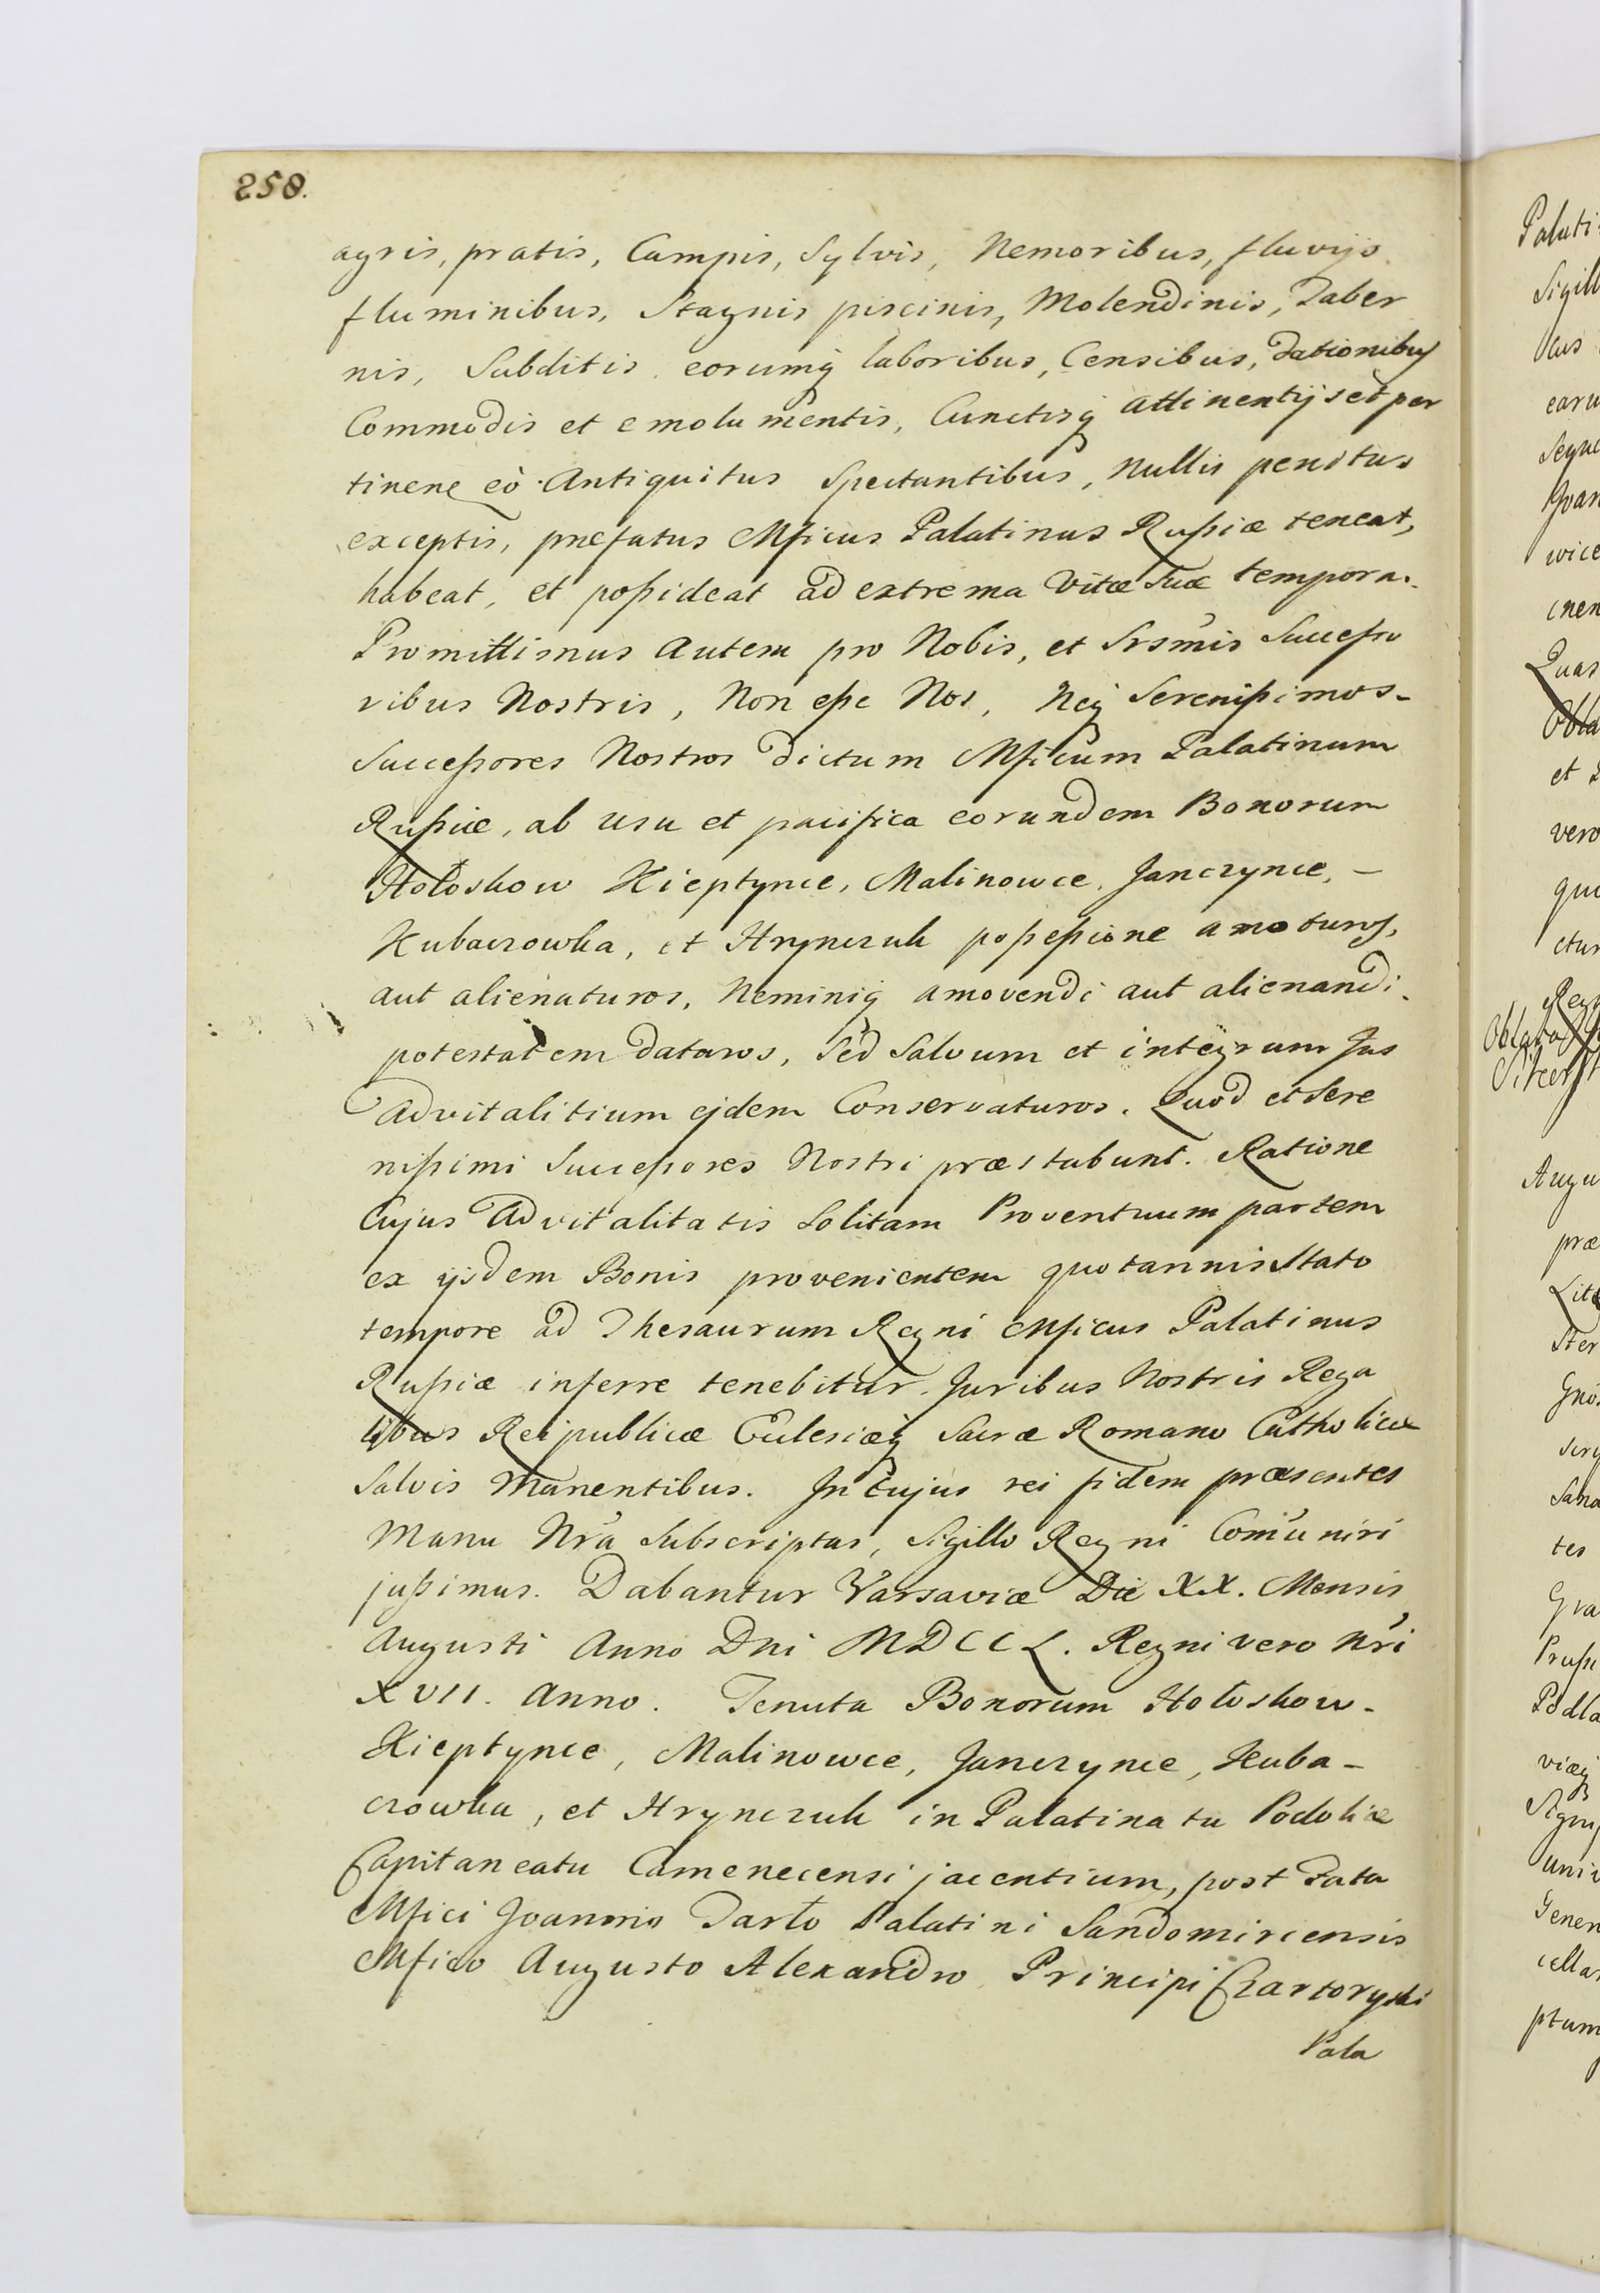 258.
agris, pratis, Campis, Sylvis, Nemoribus, fluvijs
fluminibus, Stagnis piscinis, Molendinis, Taber
nis, Subditis eorumq laboribus, Censibus, Dationibus
Commodis et emolumentis, Cunctisq attinentijs et per
tinene eò Antiquitus Spectantibus, Nullis penitus
exceptis, præfatus Mficus Palatinus Rußiæ teneat,
habeat, et poßideat ad extrema Vitæ Suæ tempora.
Promittimus autem pro Nobis, et Srsmis Succeßo
ribus Nostris, Non eße Nos, Neq Serenißimos
Succeßores Nostros dictum Mficum Palatinum
Rußiæ, ab usu et pacifica eorundem Bonorum
Hołoskow Kieptynce, Malinowce, Janczynce, –
Kubaczowka, et Hrynczuk poßeßione amoturos,
aut alienaturos, Neminiq amovendi aut alienandi
potestatem daturos, Sed Salvum et integrum Jus
Advitalitium ejdem Conservaturos. Quod et Sere
nißimi Succeßores Nostri præstabunt. Ratione
Cujus Advitalitatis Solitam Proventuum partem
ex ijsdem Bonis provenientem quotannis Stato
tempore ad Thesaurum Regni Mficus Palatinus
Rußiæ inferre tenebitur. Juribus Nostris Rega
libus Reipublicæ Eclesiæq Sacræ Romano Catholicæ
Salvis Manentibus. In Cujus rei fidem præsentes
Manu Nrã Subscriptas, Sigillo Regni Comũniri
jußimus. Dabantur Varsaviæ Die XX. Mensis
Augusti Anno Dni MDCCL. Regni vero Nri
XVII. Anno. Tenuta Bonorum Hołoskow
Kieptynce, Malinowce, Janczynce, Kuba-
czowka, et Hrynczuk in Palatinatu Podoliæ
Capitaneatu Camenecensi jacentium, post Fata
Mfici Joannis Tarło Palatini Sandomiriensis
Mfico Augusto Alexandro Principi Czartoryski
Pala